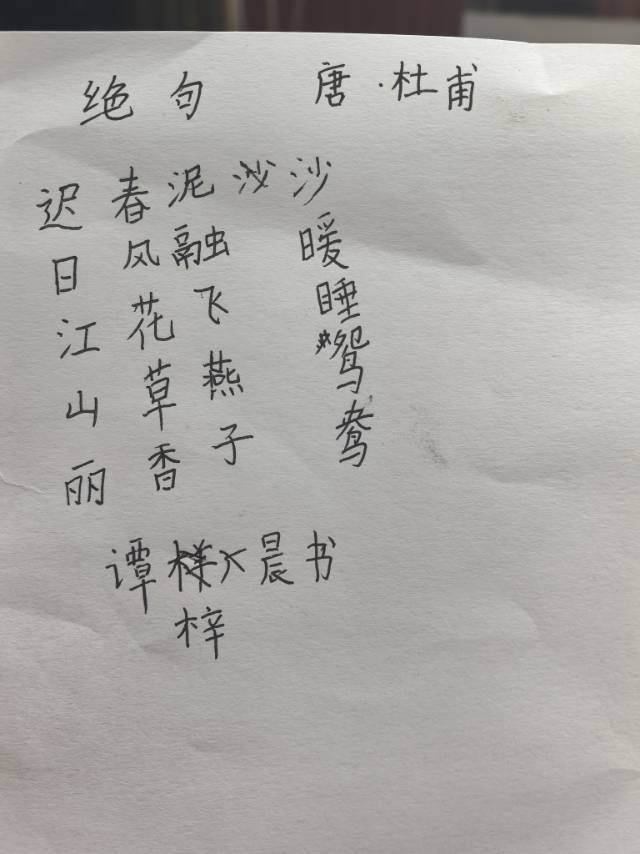 绝句 唐·杜甫
迟日江山丽
春风花草香
泥融飞燕子
沙暖睡鸳鸯
谭梓晨书